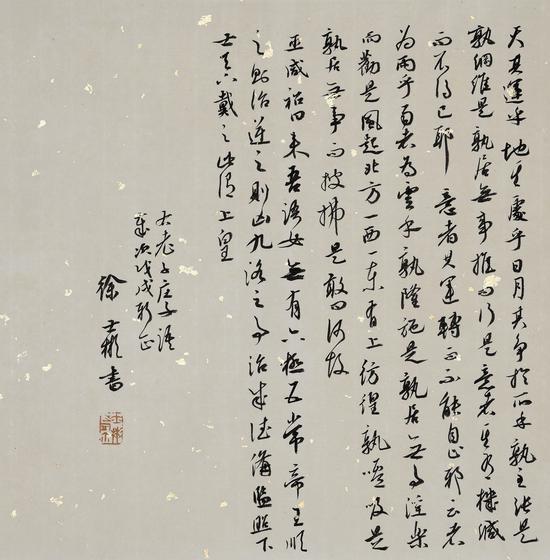 天其運乎地其處乎日月其爭於所乎孰主張是
孰綱維是孰居無事推而行是意者其有機緘
而不得已耶意者其運轉而不能自止耶云者
為雨乎雨者為雲乎孰隆施是孰居無事淫樂
而勸是風起北方一西一東有上彷徨孰噓吸是
孰居無事而披拂是敢问何故
巫咸祒曰来吾語女天有六極五常帝王順
之則治逆之則凶九洛之事治成德備監照下
土天下戴之此謂上皇
右老子庄子語
歲次戊戌新正
徐士彬書